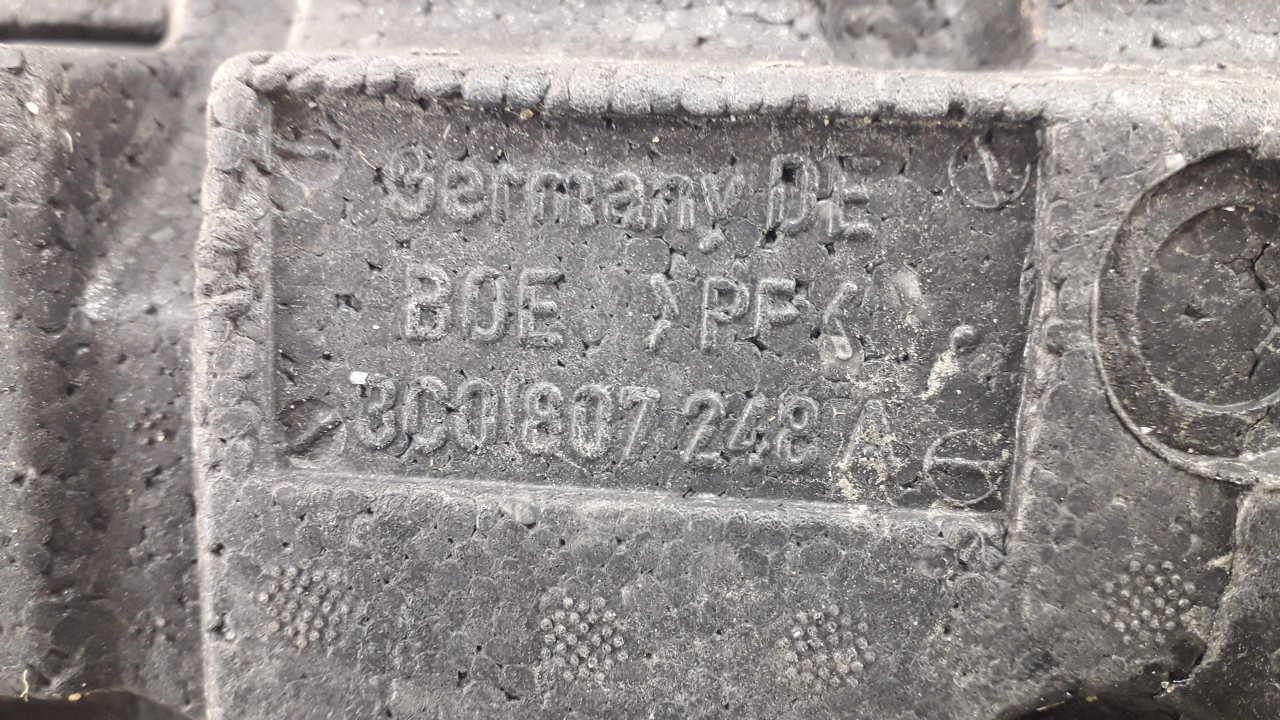 Germany DE
BOE >PE<
3C0 807 248 A